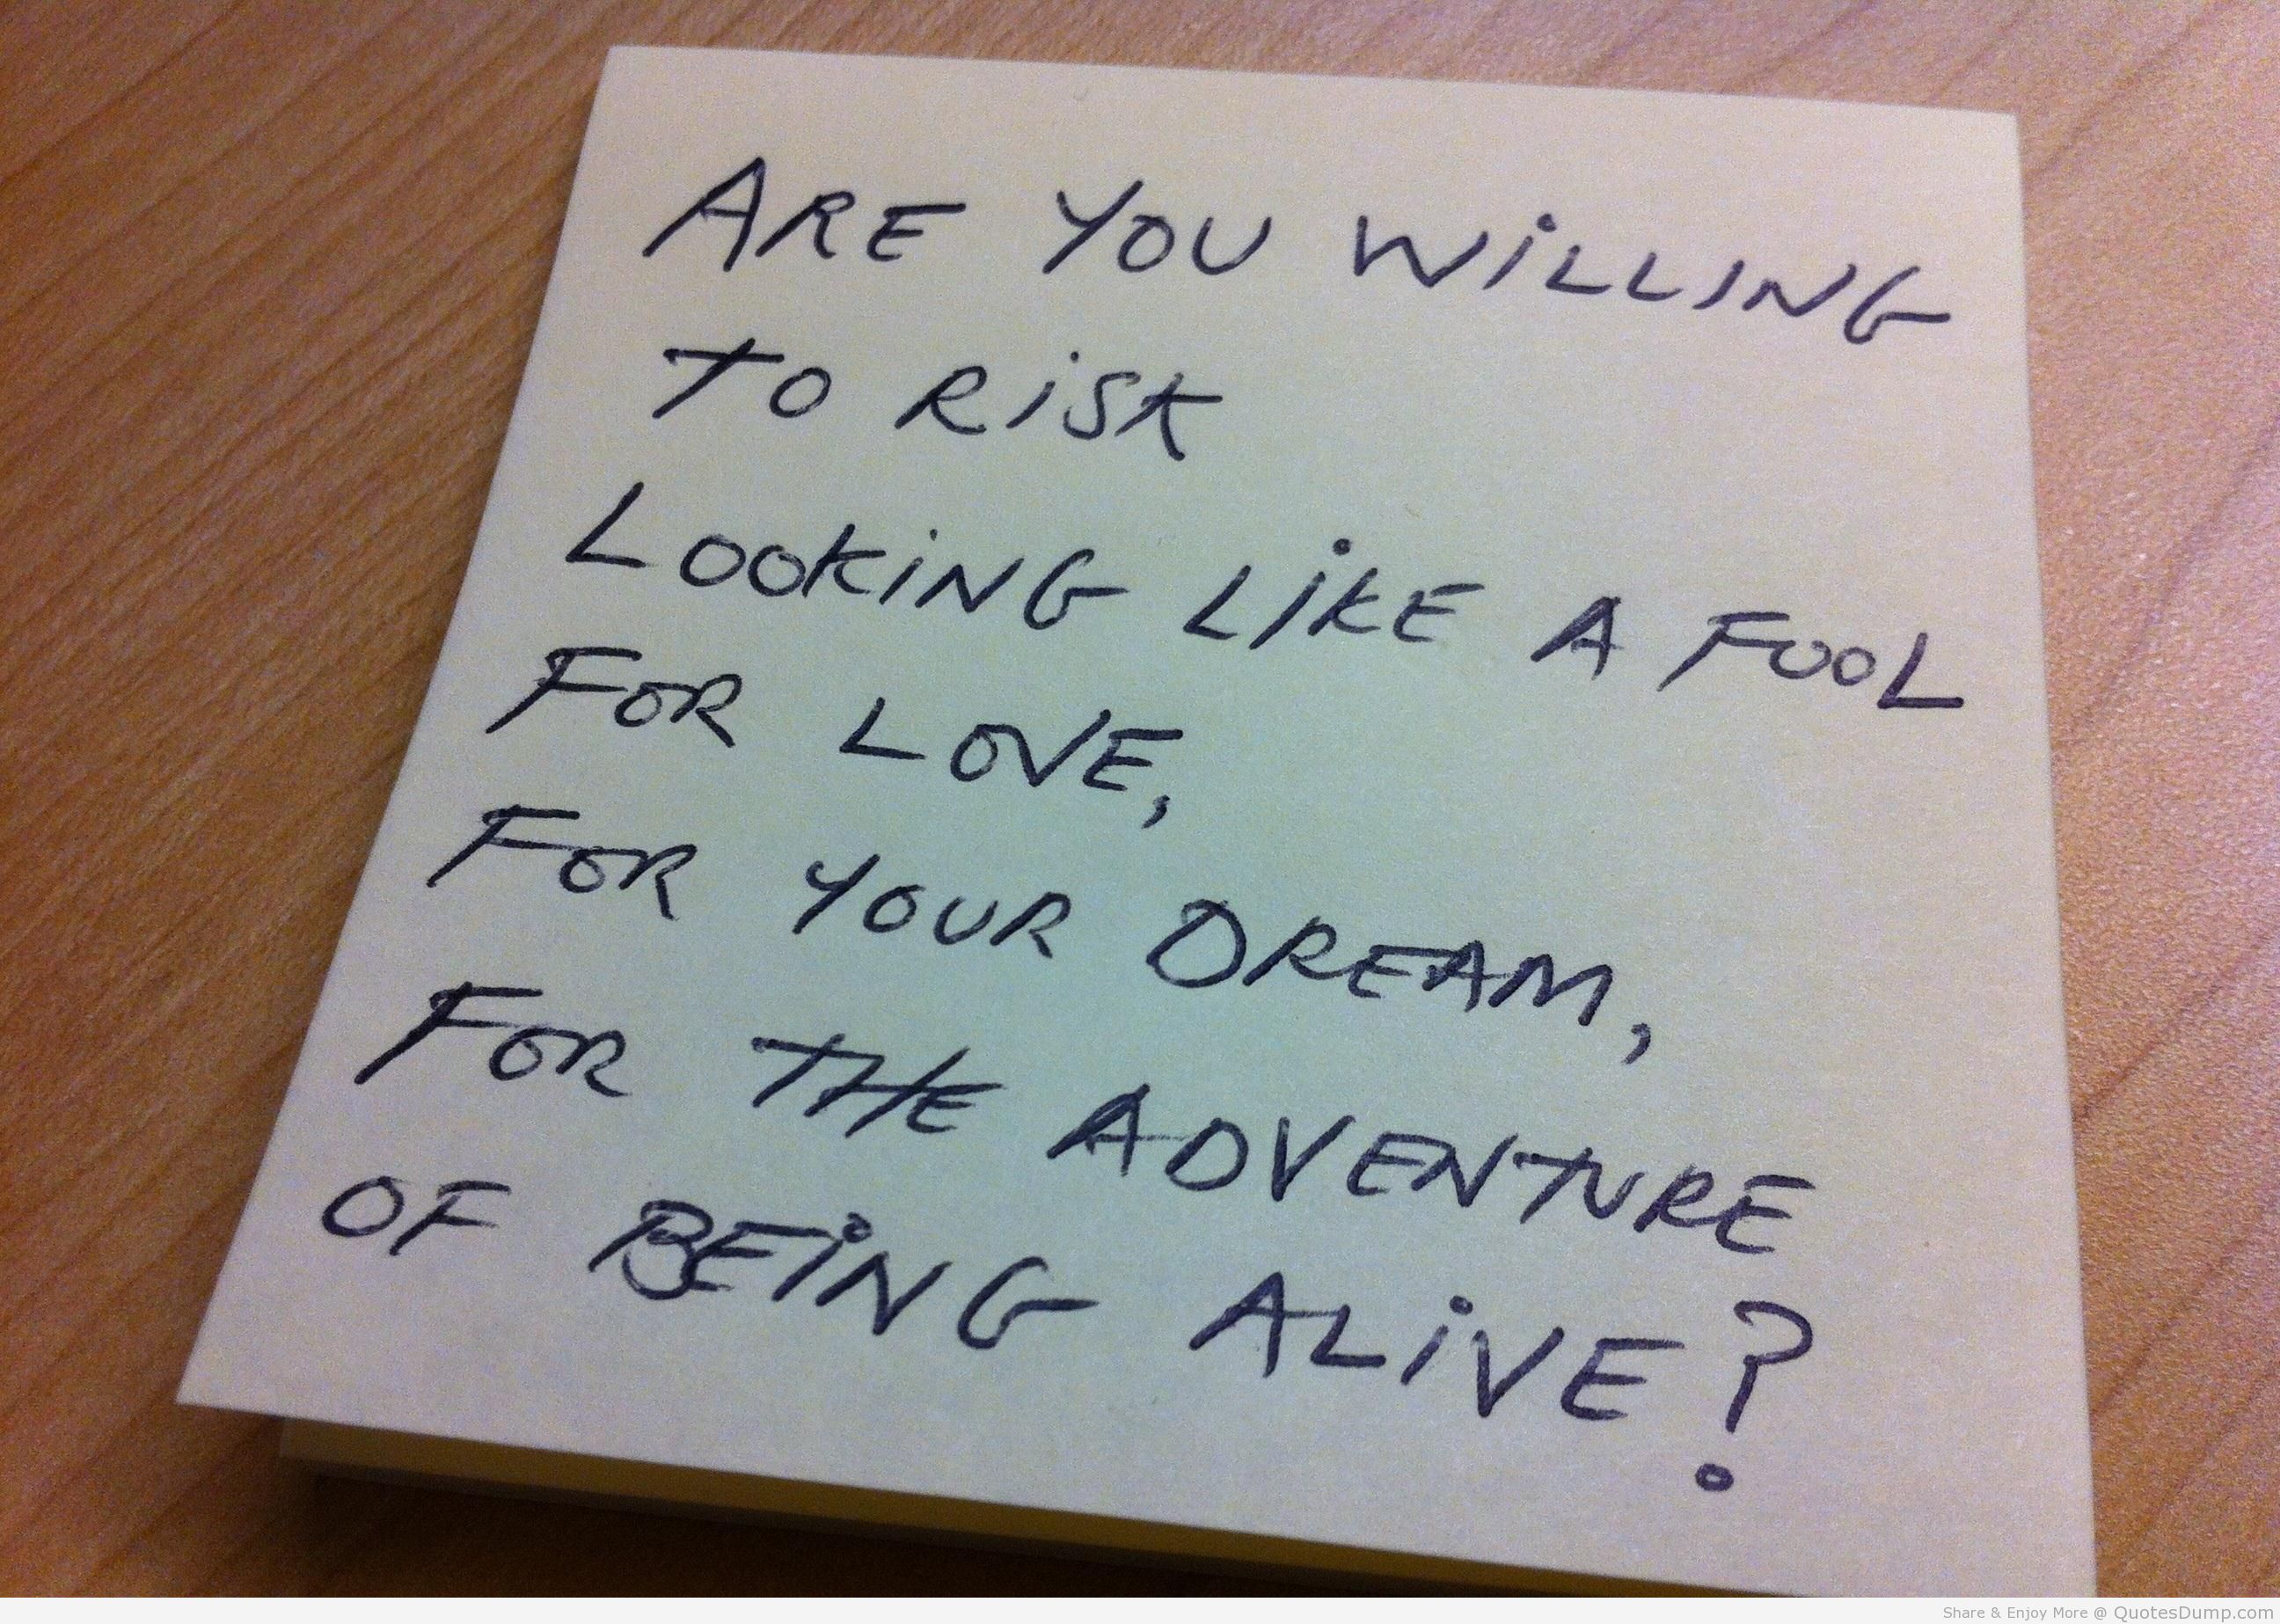 ARE YOU WiLLING
TO RiSK
LOOKiNG LiKE A FOOL
FOR LOVE,
FOR YOUR DREAM,
FOR THE ADVENTURE
OF BEiNG ALiVE?
Share & Enjoy More @ QuotesDump.com